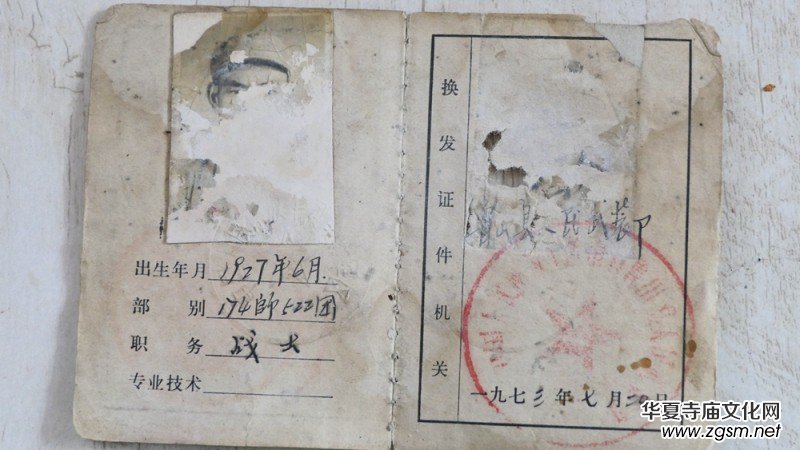 出生年月 1927年6月
部别 174師522团
职务 战士
专业技术
换发证件机关
县人民武装部
一九七三年七月二〇日
华夏寺庙文化网
www.zgsm.net